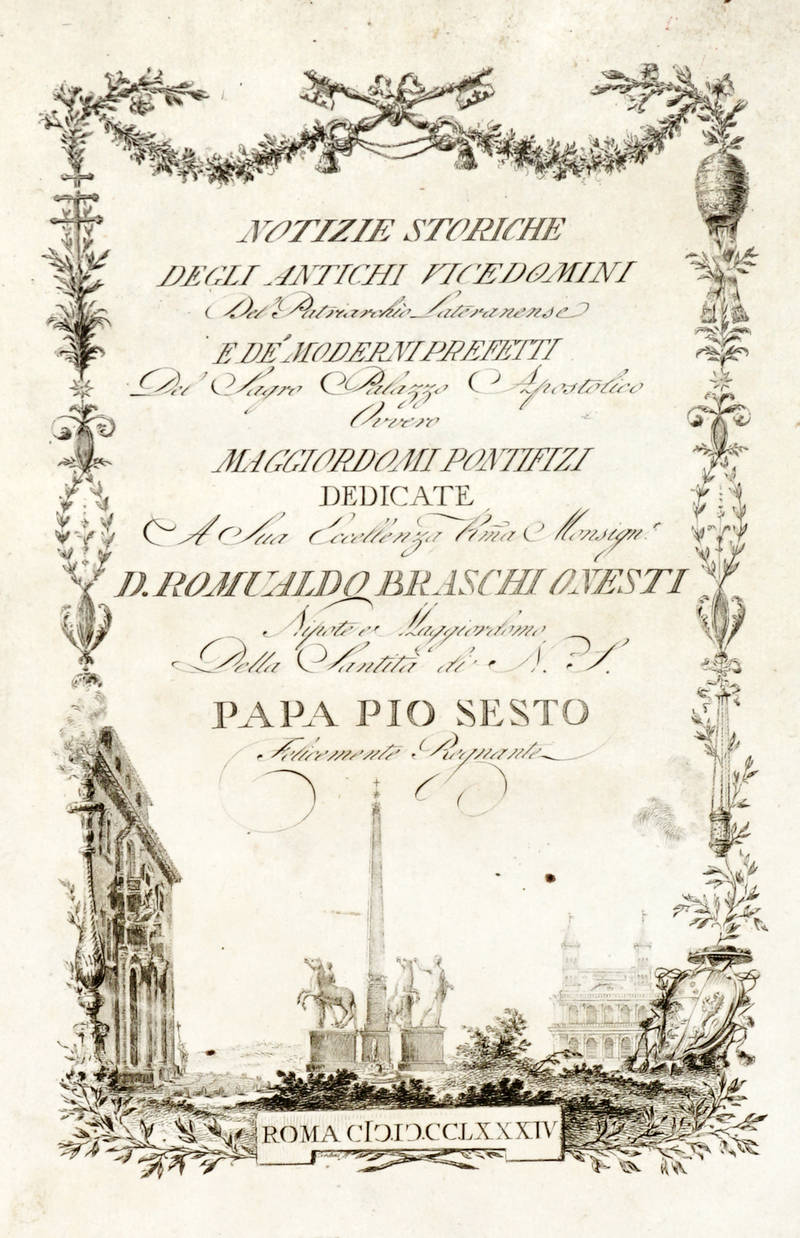 NOTIZIE STORICHE
DEGLI ANTICHI VICEDOMINI
Del Patriarchio Lateranense
E DE' MODERNI PREFETTI
Del Sagro Palazzo Apostolico
Ovvero
MAGGIORDOMI PONTIFIZI
DEDICATE
A Sua Eccellenza Rm̃a Monsign.r
D. ROMUALDO BRASCHI ONESTI
Nipote e Maggiordomo
Della Santità di N. S.
PAPA PIO SESTO
Felicemente Regnante
ROMA CIↃ.IↃ.CCLXXXIV